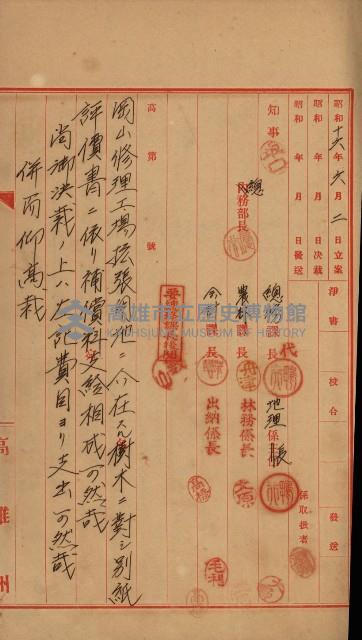 昭和十六年六月二日立案
昭和 年 月 日決裁
昭和 年 月 日發送
淨書
校合
發送
知事
總務部長
總務課長
地理係長
係取扱者
代
農林課長
林務係長
會計課長
出納係長
毛利
高第 號
岡山修理工場拡張敷地ニ介在スル樹木ニ對シ別紙
評價書ニ依リ補償料支給相成可然哉
尚御決裁ノ上ハ左記費目ヨリ支出可然哉
併而仰高裁
高雄州
高雄市立歷史博物館
KAOHSIUNG MUSEUM OF HISTORY